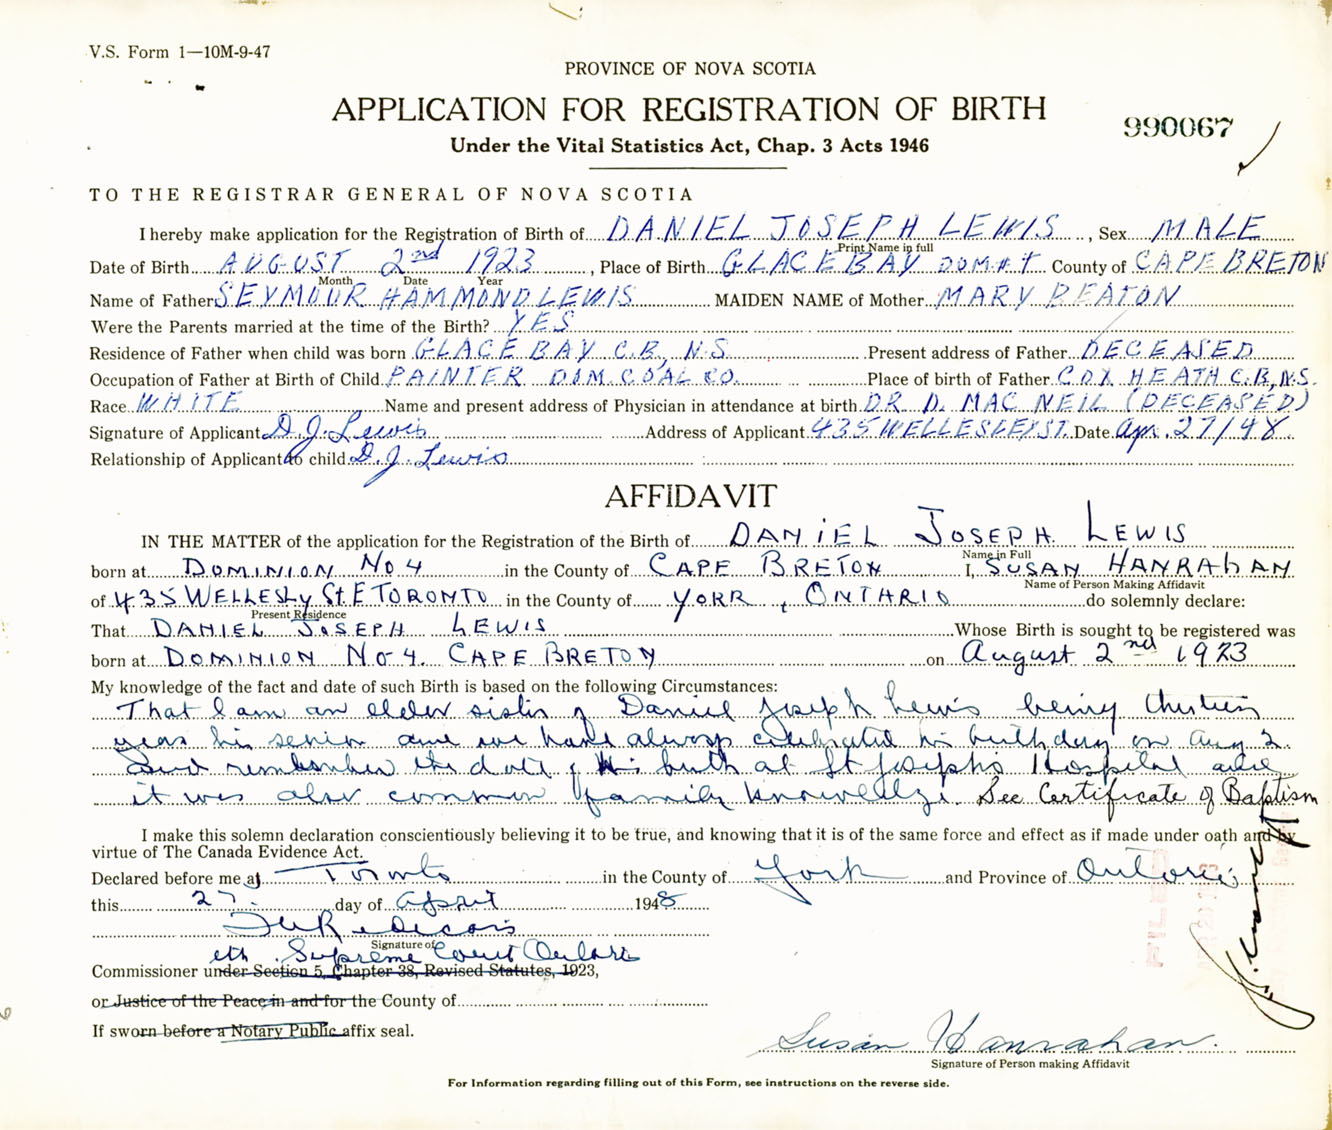 V.S. Form 1—10M-9-47
PROVINCE OF NOVA SCOTIA
APPLICATION FOR REGISTRATION OF BIRTH
990067
Under the Vital Statistics Act, Chap. 3 Acts 1946
TO THE REGISTRAR GENERAL OF NOVA SCOTIA
I hereby make application for the Registration of Birth of DANIEL JOSEPH LEWIS, Sex MALE
Print Name in full
Date of Birth AUGUST 2nd 1923, Place of Birth GLACE BAY DOM #4 County of CAPE BRETON
Month Date Year
Name of Father SEYMOUR HAMMOND LEWIS MAIDEN NAME of Mother MARY BEATON
Were the Parents married at the time of the Birth? YES
Residence of Father when child was born GLACE BAY C.B. N.S. Present address of Father DECEASED
Occupation of Father at Birth of Child PAINTER DOM. COAL CO. Place of birth of Father COX HEATH C.B, N.S.
Race WHITE Name and present address of Physician in attendance at birth DR D. MAC NEIL (DECEASED)
Signature of Applicant D. J. Lewis Address of Applicant 435 WELLESLEY ST. Date Apr. 27/48
Relationship of Applicant to child D. J. Lewis
AFFIDAVIT
IN THE MATTER of the application for the Registration of the Birth of DANIEL JOSEPH LEWIS
Name in Full
born at DOMINION No 4 in the County of CAPE BRETON I, SUSAN HANRAHAN
Name of Person Making Affidavit
of 435 WELLESLY St. E TORONTO in the County of YORK, ONTARIO do solemnly declare:
Present Residence
That DANIEL JOSEPH LEWIS Whose Birth is sought to be registered was
born at DOMINION No 4. CAPE BRETON on August 2nd 1923
My knowledge of the fact and date of such Birth is based on the following Circumstances:
That I am an elder sister of Daniel Joseph Lewis being thirteen
years his senior and we have always celebrated his birthday on Aug 2.
and remember the date of his birth at St Josephs Hospital and
it was also common family knowledge. See Certificate of Baptism
I make this solemn declaration conscientiously believing it to be true, and knowing that it is of the same force and effect as if made under oath and by
virtue of The Canada Evidence Act.
Declared before me at Toronto in the County of York and Province of Ontario
this 27. day of April 1948
Signature of
Supreme Court Ontario
Commissioner under Section 5, Chapter 38, Revised Statutes, 1923,
or Justice of the Peace in and for the County of
If sworn before a Notary Public affix seal.
Susan Hanrahan.
Signature of Person making Affidavit
For Information regarding filling out of this Form, see instructions on the reverse side.
FILED